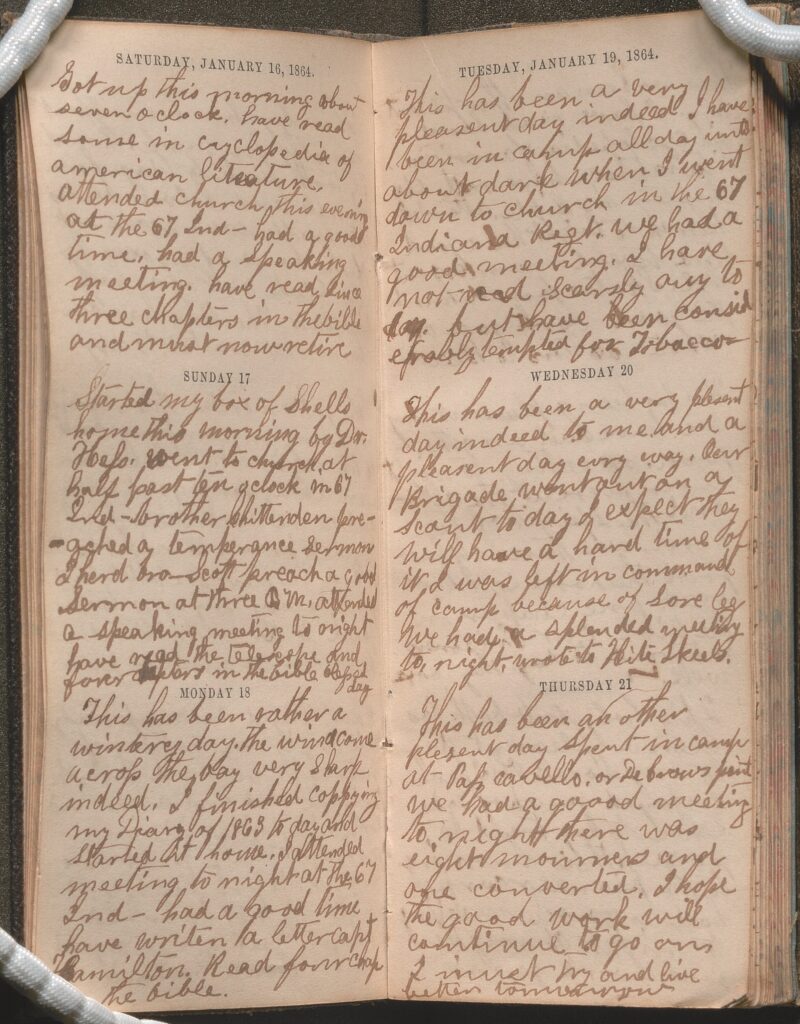 SATURDAY, JANUARY 16, 1864.
Got up this morning about
seven oclock. have read
some in cyclopedia of
american liteature,
attended church, this evening
at the 67, Ind - had a good
time, had a speaking
meeting. have read since
three chapters in the bible
and must now retire
SUNDAY 17
Started my box of Shells
home this morning by Dr.
Hess. went to church, at
half past ten oclock in 67
Ind - brother Chittenden pre-
ached a temperance sermon
I herd bro Scott preach a good
sermon at three P M. attended
a speaking meeting to night
have read the telescope and
four chapters in the bible blessed
day
MONDAY 18
This has been rather a
wintery day. the wind come
across the bay very sharp
indeed. I finished coppying
my Diary of 1863 to day and
started it home. I attended
meeting to night at the 67
Ind - had a good time
have writen a letter capt
Hamilton. Read four chap
the bible.
TUESDAY, JANUARY 19, 1864.
This has been a very
pleasent day indeed I have
been in camp all day until
about dark when I went
down to church in the 67
Indiana Regt. we had a
good meeting. I have
not read scarsly any to
day. but have been consid
erably tempted for Tobacco
WEDNESDAY 20
This has been a very plesent
day indeed to me and a
pleasent day evry way. Our
Brigade went out on a
scout to day I expect they
will have a hard time of
it I was left in command
of camp because of Sore leg
We had a splended meeting
to, night, wrote to Hite Skeels.
THURSDAY 21
This has been an other
plesent day spent in camp
at Pass cavello. or Debrows point
we had a goood meeting
to, night there was
eight mourners and
one converted. I hope
the good work will
continue to go on,
I must try and live
better tomorrow